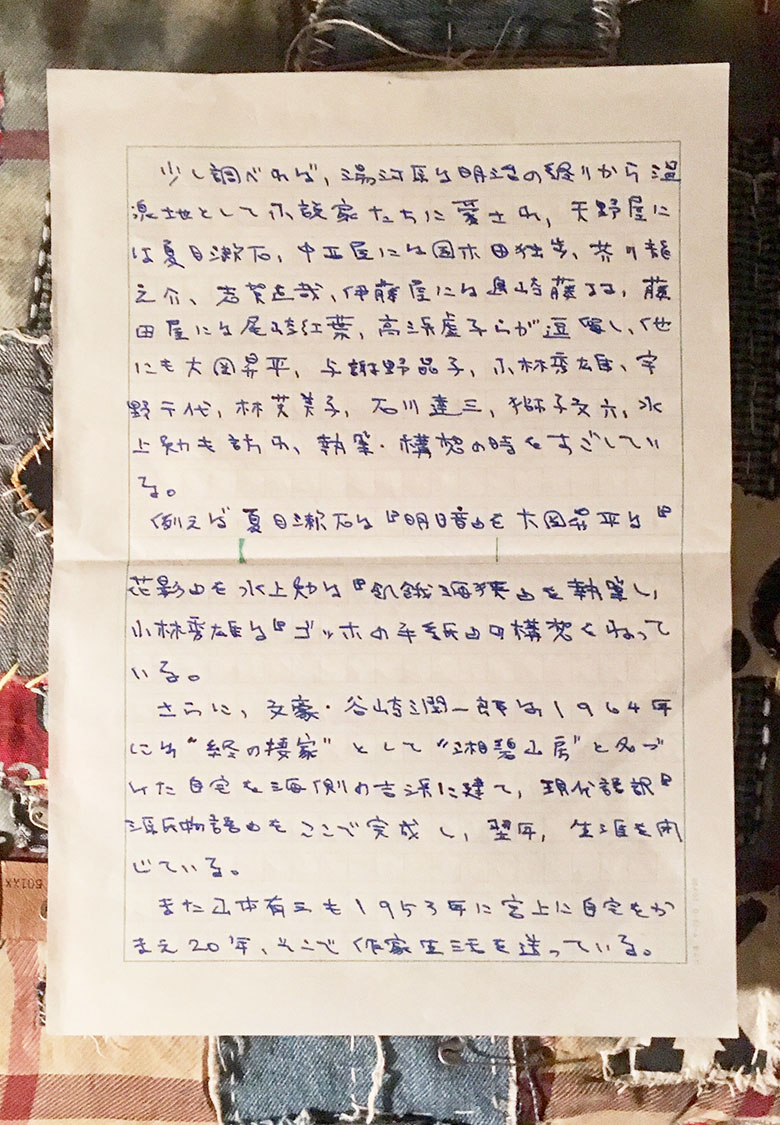 少し調べれば、湯河原は明治の終りから温
泉地として小説家たちに愛され、天野屋に
は夏目漱石、中西屋には国木田独歩、芥川龍
之介、志賀直哉、伊藤屋には島崎藤村、藤
田屋には尾崎紅葉、高浜虚子らが逗留し、他
にも大岡昇平、与謝野晶子、小林秀雄、宇
野千代、林芙美子、石川達三、獅子文六、水
上勉も訪れ、執筆・構想の時をすごしてい
る。
例えば夏目漱石は『明暗』を大岡昇平は『
花影』を水上勉は『飢餓海峡』を執筆し、
小林秀雄は『ゴッホの手紙』の構想をねって
いる。
さらに、文豪・谷崎潤一郎は1964年
には“終の棲家”として“湘碧山房”と名づ
けた自宅を海側の吉浜に建て、現代語訳『
源氏物語』をここで完成し、翌年、生涯を閉
じている。
また山本有三も1953年に宮上に自宅をか
まえ20年、そこで作家生活を送っている。
501XX